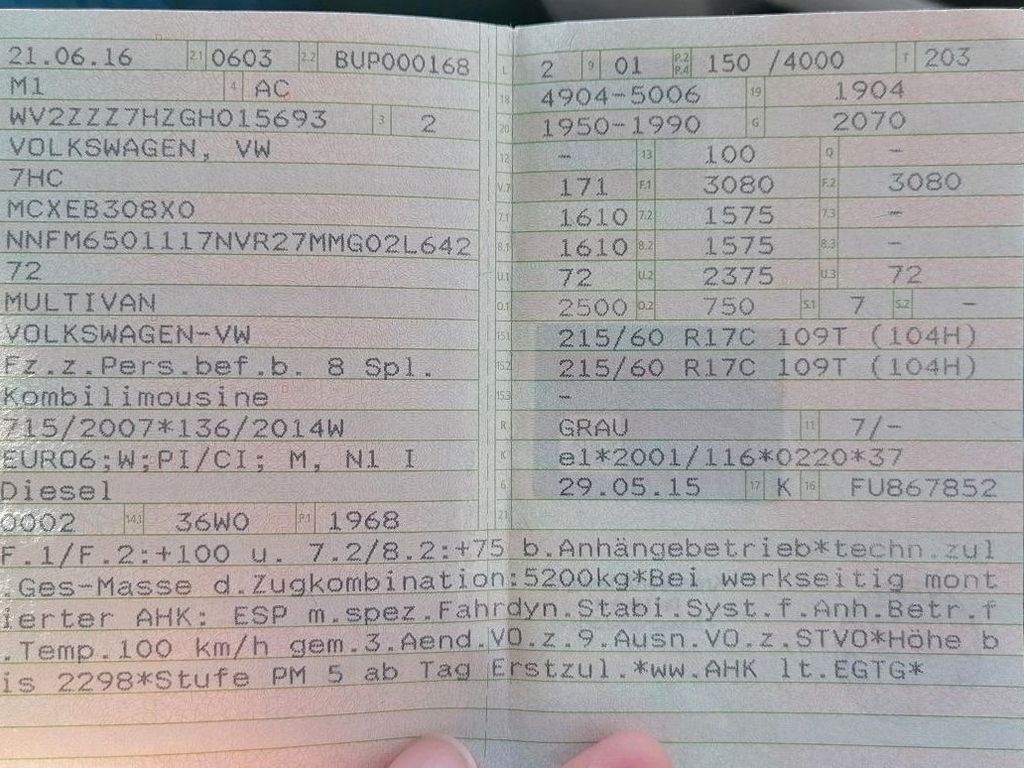 21.06.16 2.1 0603 2.2 BUP000168
M1 4 AC
WV2ZZZ7HZGH015693 3 2
VOLKSWAGEN, VW
7HC
MCXEB308X0
NNFM6501117NVR27MMG02L642
72
MULTIVAN
VOLKSWAGEN-VW
Fz.z.Pers.bef.b. 8 Spl.
Kombilimousine
715/2007*136/2014W
EURO6;W;PI/CI; M, N1 I
Diesel
0002 14.3 36W0 P.1 1968
L 2 9 01 P.2 P.4 150 /4000 T 203
18 4904-5006 19 1904
20 1950-1990 G 2070
12 – 13 100 Q –
V.7 171 F.1 3080 F.2 3080
7.1 1610 7.2 1575 7.3 –
8.1 1610 8.2 1575 8.3 –
U.1 72 U.2 2375 U.3 72
O.1 2500 O.2 750 S.1 7 S.2 –
15.1 215/60 R17C 109T (104H)
15.2 215/60 R17C 109T (104H)
15.3 –
R GRAU 11 7/-
K e1*2001/116*0220*37
6 29.05.15 17 K 16 FU867852
21
F.1/F.2:+100 u. 7.2/8.2:+75 b.Anhängebetrieb*techn.zul
.Ges-Masse d.Zugkombination:5200kg*Bei werkseitig mont
ierter AHK: ESP m.spez.Fahrdyn.Stabi.Syst.f.Anh.Betr.f
.Temp.100 km/h gem.3.Aend.VO.z.9.Ausn.VO.z.STVO*Höhe b
is 2298*Stufe PM 5 ab Tag Erstzul.*ww.AHK lt.EGTG*